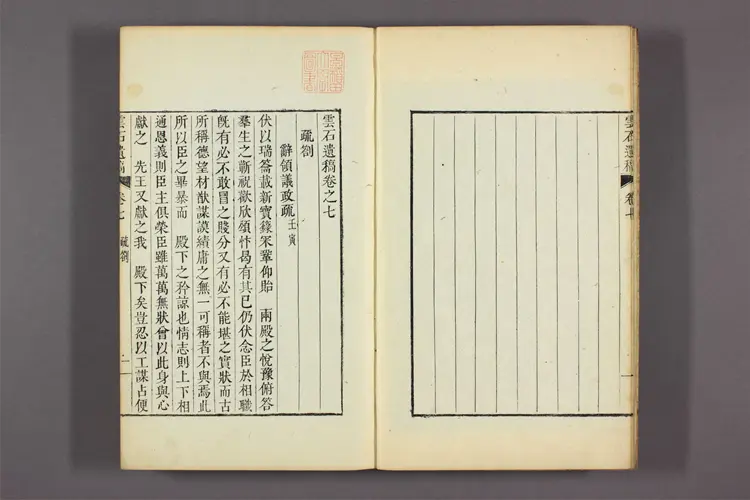 雲石遺稿卷之七
疏劄
辭領議政疏壬寅
伏以瑞蓂載新寶籙罙鞏仰貽 兩殿之悅豫俯答
羣生之蘄祝歡欣頌忭曷有其已仍伏念臣於相職
旣有必不敢冒之賤分又有必不能堪之實狀而古
所稱德望材猷謀謨績庸之無一可稱者不與焉此
所以臣之畢暴而 殿下之矜諒也情志則上下相
通恩義則臣主俱榮臣雖萬萬無狀曾以此身與心
獻之 先王又獻之我 殿下矣豈忍以工謀占便
雲石遺稿 卷七 疏劄 一
雲石遺稿 卷